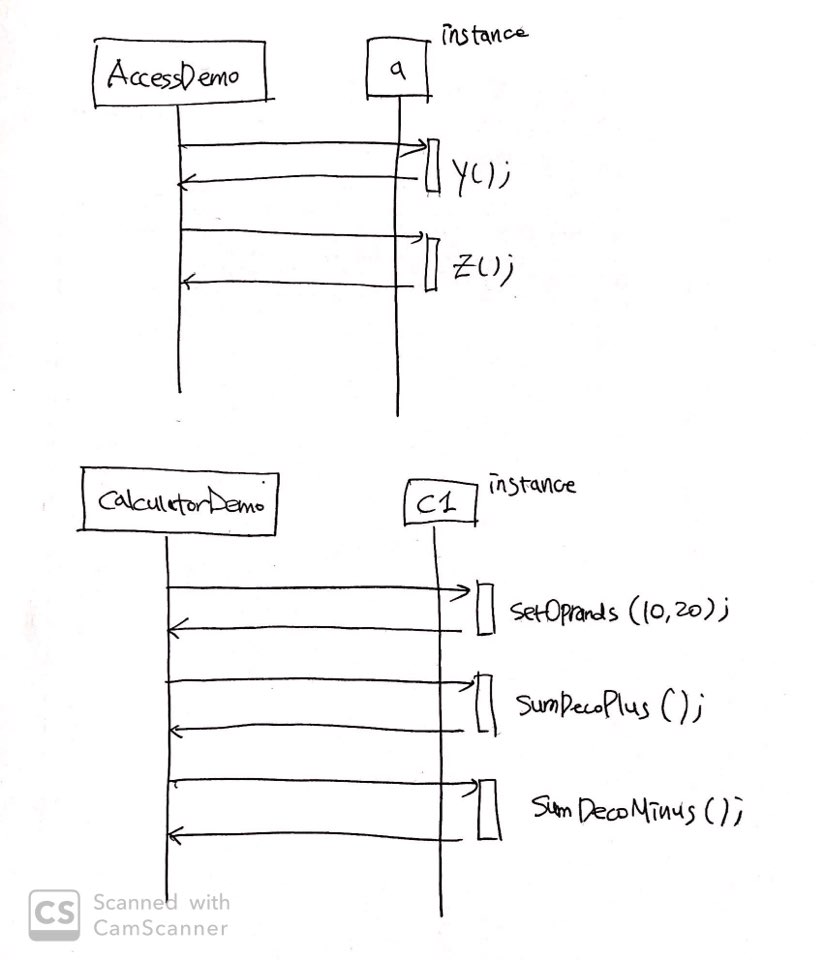 instance
AccessDemo
a
y();
z();
instance
CalculatorDemo
C1
setOprands (10,20);
sumDecoPlus ();
sumDecoMinus ();
CS
Scanned with
CamScanner